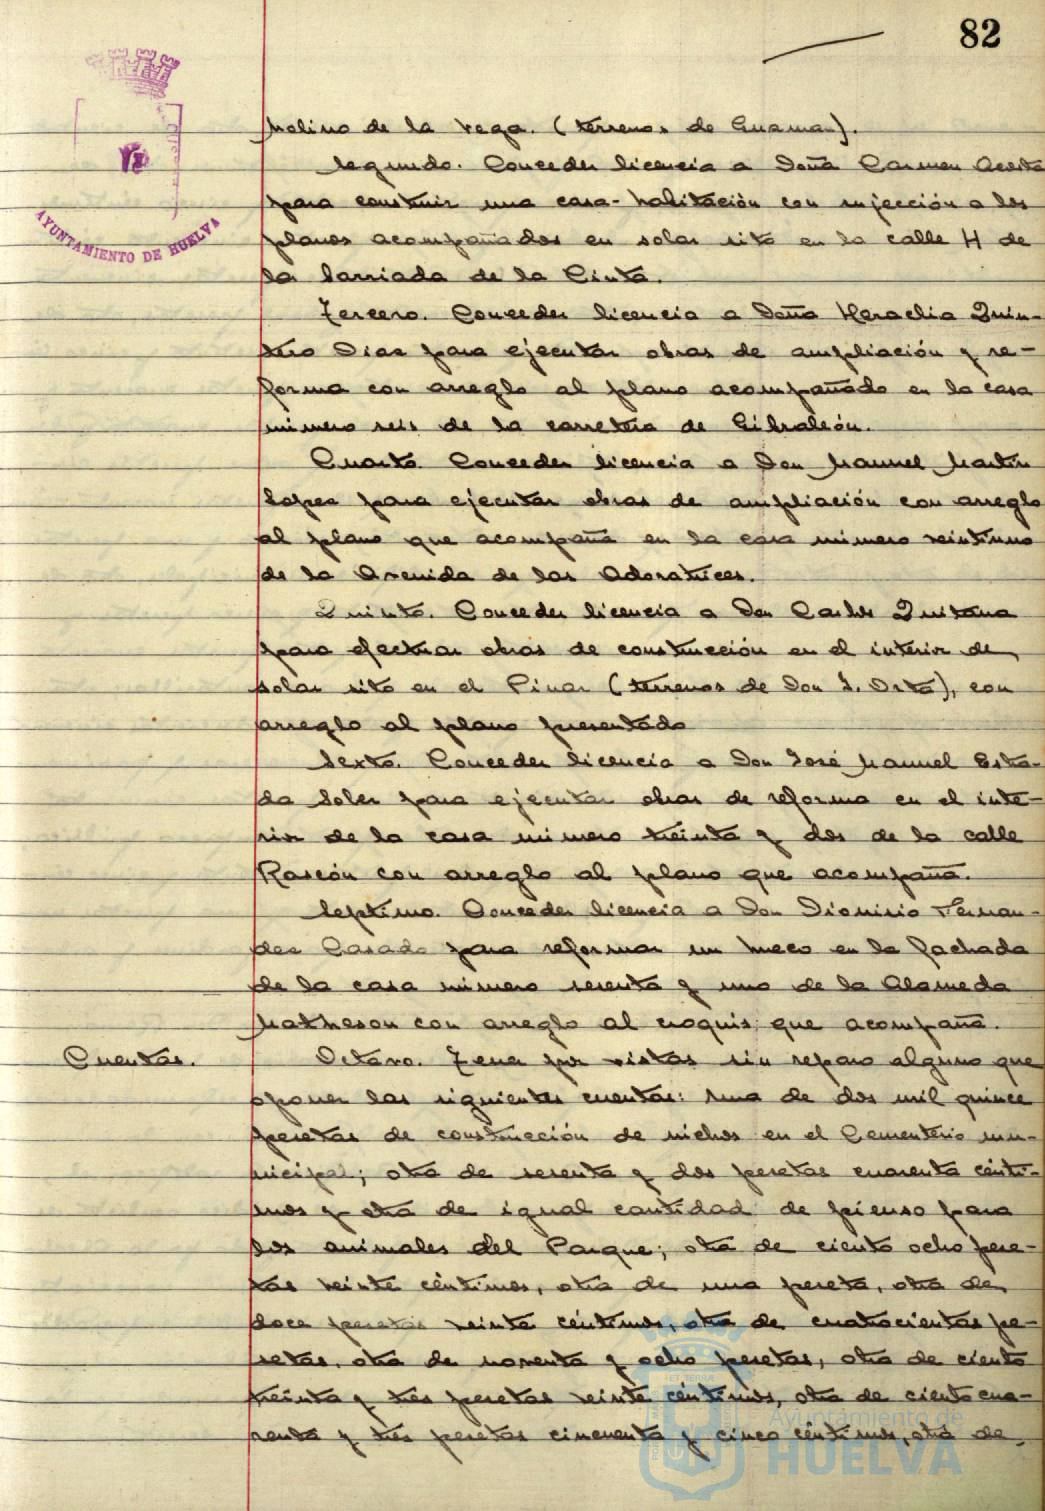 82
AYUNTAMIENTO DE HUELVA
Molino de la Vega. (terrenos de Guzman).
Segundo. Conceder licencia a Doña Carmen Acosta
para construir una casa-habitación con sujección a los
planos acompañados en solar sito en la calle H de
la barriada de la Cinta.
Tercero. Conceder licencia a Doña Heraclia Quin-
tero Diaz para ejecutar obras de ampliación y re-
forma con arreglo al plano acompañado en la casa
número seis de la carretera de Gibraleón.
Cuarto. Conceder licencia a Don Manuel Martín
Lopez para ejecutar obras de ampliación con arreglo
al plano que acompaña en la casa número veintiuno
de la Avenida de las Adoratrices.
Quinto. Conceder licencia a Don Carlos Quintana
para efectuar obras de construcción en el interior de
solar sito en el Pinar (terrenos de Don J. Orta), con
arreglo al plano presentado
Sexto. Conceder licencia a Don José Manuel Estra-
da Soler para ejecutar obras de reforma en el inte-
rior de la casa número treinta y dos de la calle
Rascón con arreglo al plano que acompaña.
Septimo. Conceder licencia a Don Dionisio Fernan-
dez Casado para reformar un hueco en la fachada
de la casa número sesenta y uno de la Alameda
Matheson con arreglo al croquis que acompaña.
Cuentas.
Octavo. Tener por vistas sin reparo alguno que
oponer las siguientes cuentas: una de dos mil quince
pesetas de construcción de nichos en el Cementerio mu-
nicipal; otra de sesenta y dos pesetas cuarenta cénti-
mos y otra de igual cantidad de pienso para
los animales del Parque; otra de ciento ocho pese-
tas veinte céntimos, otra de una peseta, otra de
doce pesetas veinte céntimos, otra de cuatrocientas pe-
setas, otra de noventa y ocho pesetas, otra de ciento
treinta y tres pesetas veinte céntimos, otra de ciento cua-
renta y tres pesetas cincuenta y cinco céntimos, otra de
Ayuntamiento de
HUELVA